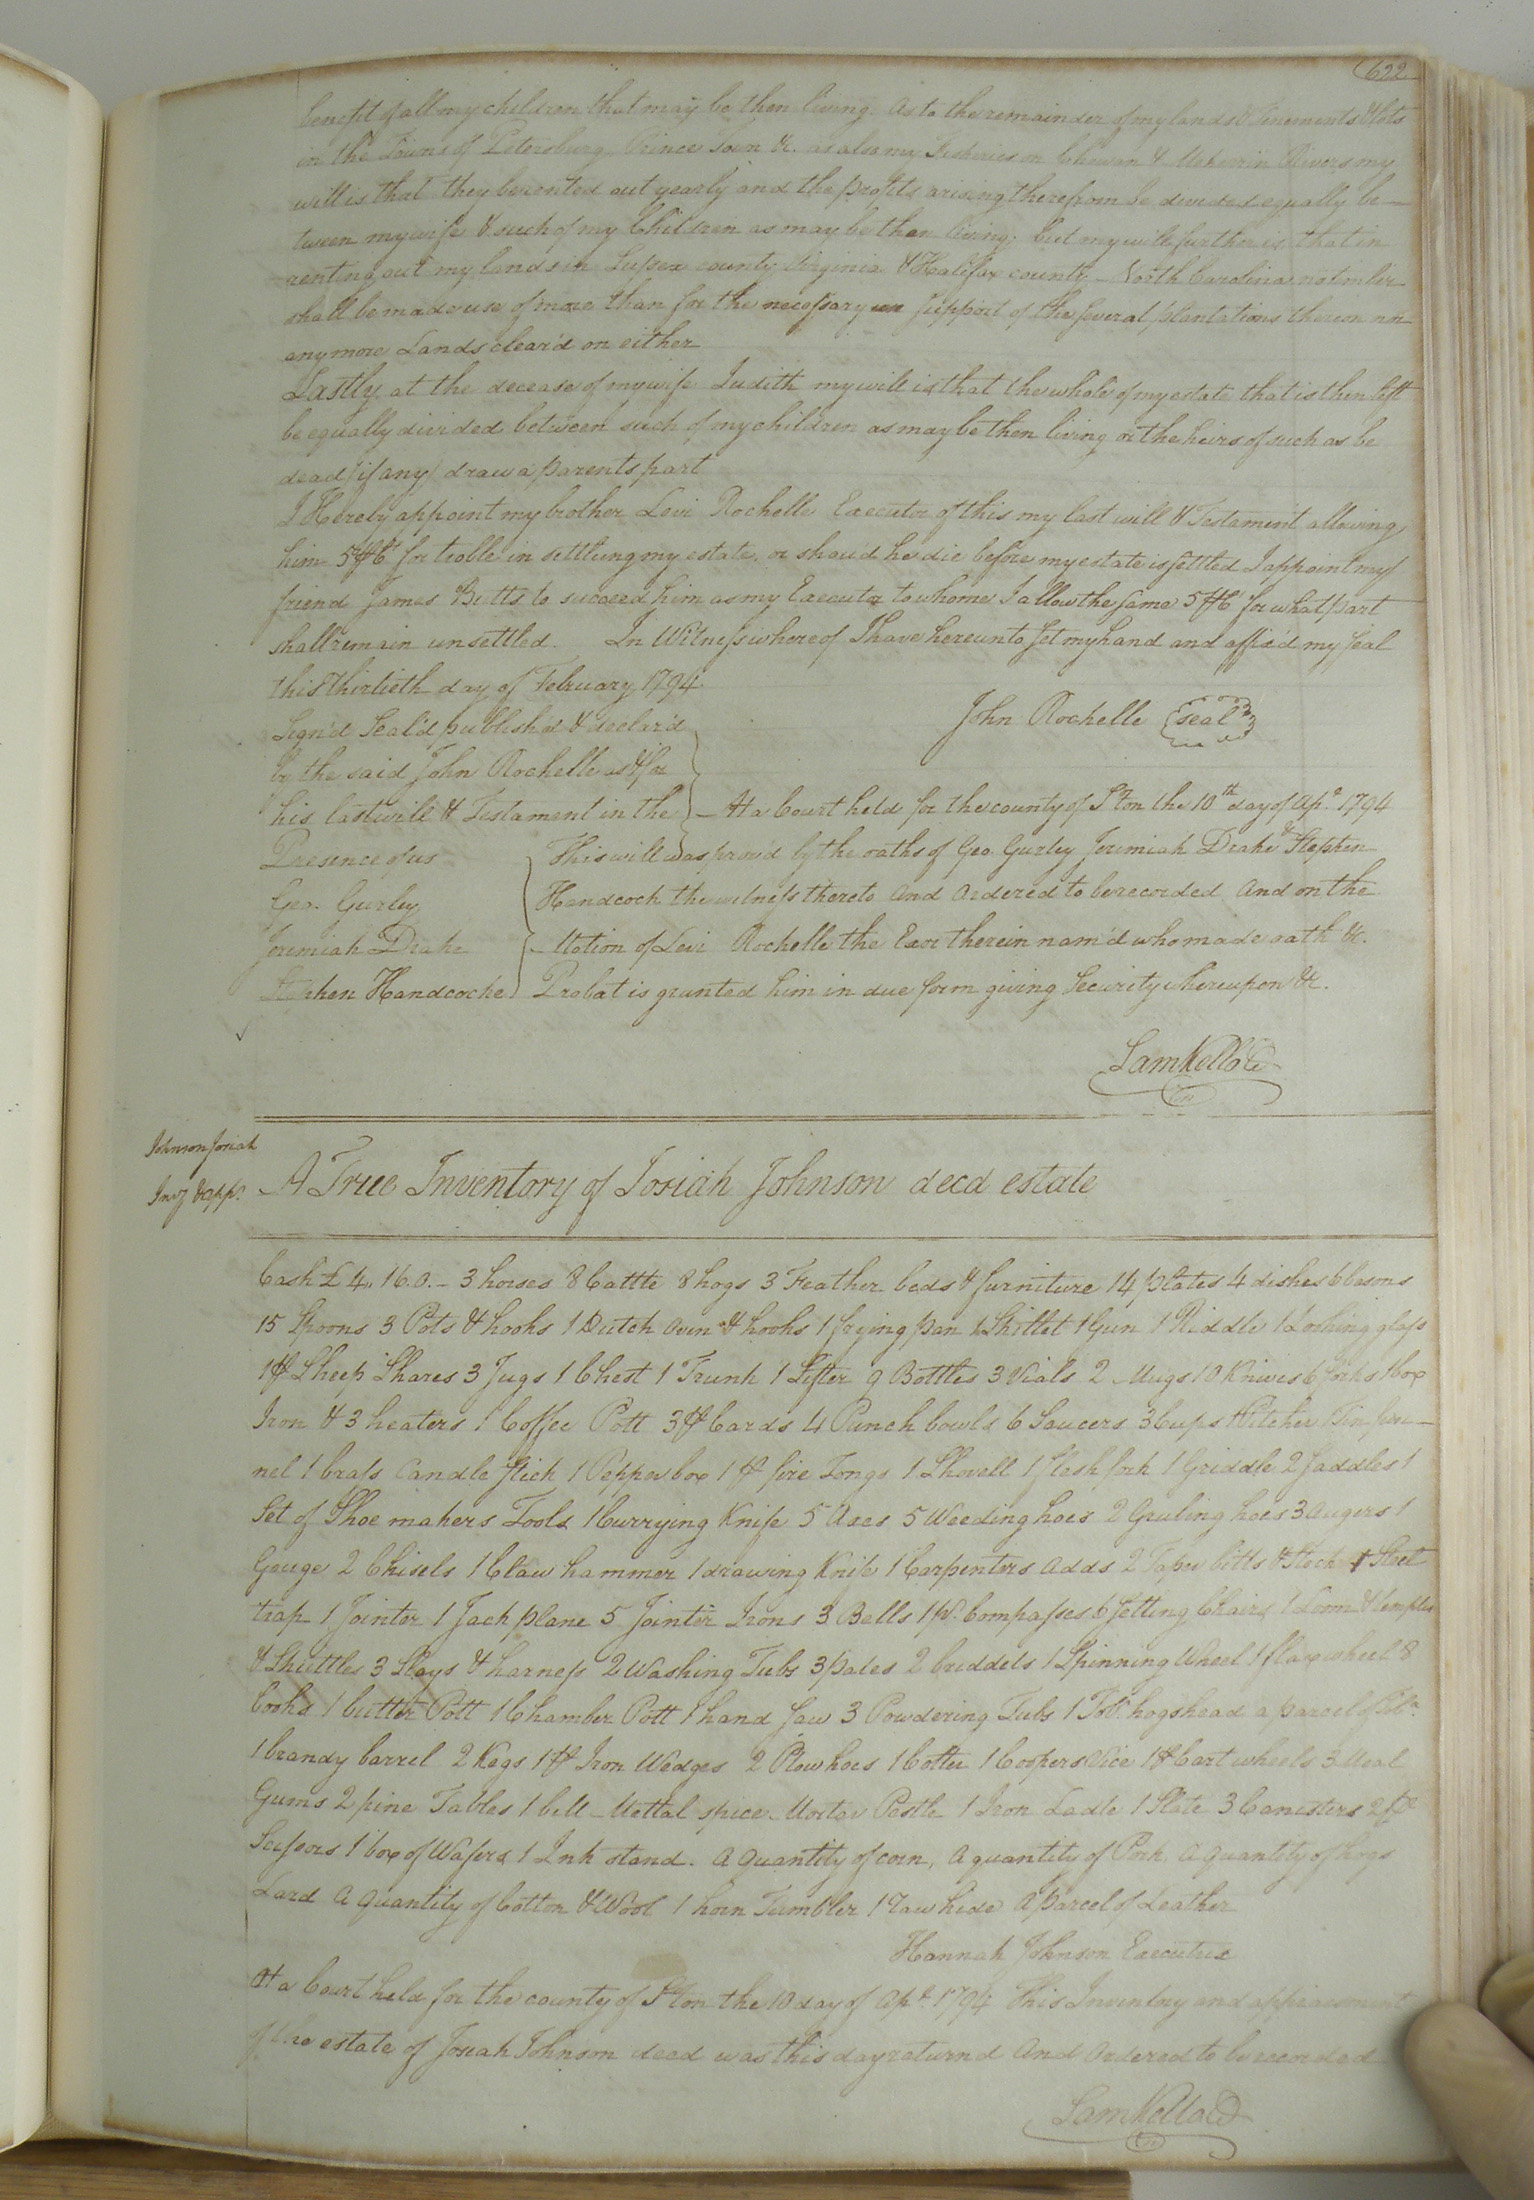 622
benefit of all my children that may be then living. As to the remainder of my lands & Tenements & lots
in the Towns of Petersburg, Prince Town &c. as also my Fisheries on Chowan & Meherrin Rivers my
will is that they be rented out yearly and the profits arising therefrom be divided equally be-
tween my wife & such of my Children as may be then living; but my will further is that in
renting out my lands in Sussex county Virginia & Halifax county North Carolina no timber
shall be made use of more than for the necessary support of the several plantations thereon nor
any more Lands clear'd on either
Lastly at the decease of my wife Judith my will is that the whole of my estate that is then left
be equally divided between such of my children as may be then living or the heirs of such as be
dead (if any) draw a parents part
I Hereby appoint my brother Levi Rochelle Executor of this my last will & Testament allowing
him 5 for troble in settlung my estate. or shou'd he die before my estate is settled I appoint my
friend James Butts to succeed him as my Executor to whome I allow the same 5 for what part
shall remain unsettled. In Witness whereof I have hereunto set my hand and affix'd my seal
this thirtieth day of February 1794
John Rochelle seal
Sign'd Seal'd publish'd & declar'd
by the said John Rochelle as & for
his last will & Testament in the
Presence of us
Geo. Gurley
Jeremiah Drake
Stephen Handcocke
At a Court held for the county of Sºton the 10th day of Apl. 1794
This will was prov'd by the oaths of Geo Gurley Jeremiah Drake & Stephen
Handcock the witness thereto and Ordered to be recorded And on the
Motion of Levi Rochelle the Exor therein nam'd who made oath &c.
Probat is granted him in due form giving Security whereupon &c.
Sam Kello CC
Johnson Josiah
Invy & appt.
A True Inventory of Josiah Johnson decd estate
Cash £4.. 16.0.- 3 horses 8 Cattle 8 hogs 3 Feather beds & furniture 14 plates 4 dishes 6 basons
15 Spoons 3 Pots & hooks 1 Dutch oven & hooks 1 frying pan 1 Skillet 1 Gun 1 Riddle 1 Looking glass
1 pr Sheep Shares 3 Jugs 1 Chest 1 Trunk 1 Sifter 9 Bottles 3 Vials 2 Mugs 10 Knives 6 forks 1 box
Iron & 3 heaters 1 Coffee Pott 3 pr Cards 4 Punch bowls 6 Saucers 3 Cups 1 Pitcher 1 Tin fun-
nel 1 brass Candle stick 1 Pepper box 1 pr fire Tongs 1 Shovell 1 flesh fork 1 Griddle 2 saddles 1
Set of Shoe makers Tools 1 Currying Knife 5 Axes 5 Weeding hoes 2 Grubing hoes 3 augers 1
Gouge 2 Chisels 1 Claw hammer 1 drawing Knife 1 Carpenters adds 2 Taper bitts & Stock 1 Steel
trap 1 Jointer 1 Jack plane 5 Jointer Irons 3 Bells 1 pr. Compasses 6 setting Chairs 1 Loom & temples
& Shuttles 3 Slays & harness 2 Washing Tubs 3 pales 2 briddels 1 Spinning Wheel 1 flax wheel 8
books 1 butter Pott 1 Chamber Pott 1 hand saw 3 Powdering Tubs 1 Tobo. hogshead a parcel of Tobo.
1 brandy barrel 2 Kegs 1 pr Iron Wedges 2 Plow hoes 1 Colter 1 Coopers Vice 1 pr Cart wheels 3 Meal
Gums 2 pine Tables 1 bell Mettal spice Mortar Pestle 1 Iron Ladle 1 Slate 3 Canisters 2 pr
Scissors 1 box of Wafers 1 Ink stand. A quantity of corn, A quantity of Pork, A quantity of hogs
Lard A quantity of Cotton & Wool 1 horn Tumbler 1 raw hide A parcel of Leather
Hannah Johnson Executrix
At a Court held for the county of Sºton the 10 day of Apl. 1794 This Inventory and appraisment
of the estate of Josiah Johnson decd was this day returnd And Ordered to be recorded
Sam Kello CC